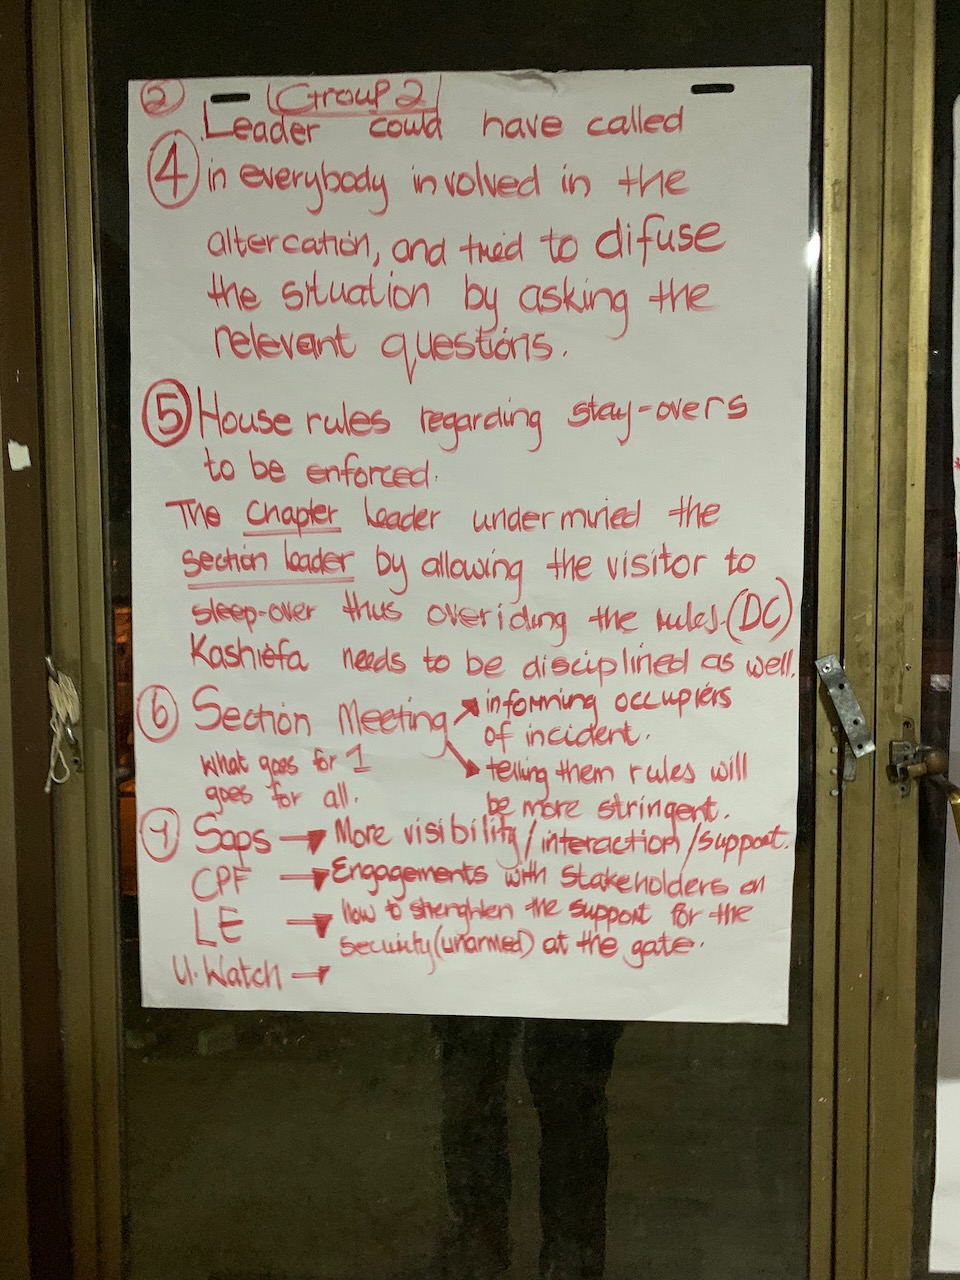 ② Group 2
Leader could have called
④ in everybody involved in the
altercation, and tried to difuse
the situation by asking the
relevant questions.
⑤ House rules regarding stay-overs
to be enforced.
The Chapter leader undermined the
section leader by allowing the visitor to
sleep-over thus overiding the rules. (DC)
Kashiefa needs to be disciplined as well.
⑥ Section Meeting → informing occupiers
of incident.
→ telling them rules will
be more stringent.
What goes for 1
goes for all.
⑦ Saps → More visibility/interaction/support.
CPF → Engagements with stakeholders on
LE → how to strenghten the support for the
security (unarmed) at the gate.
U. Watch →